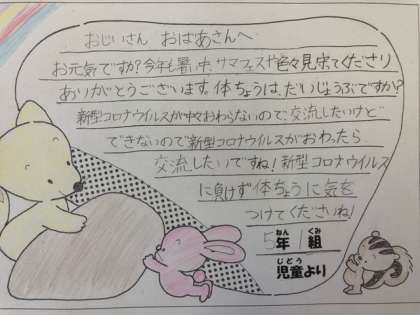 おじいさん おばあさんへ
お元気ですか?今年も暑い中、サマフェスや色々見守てくださり
ありがとうございます。体ちょうは、だいじょうぶですか?
新型コロナウイルスが中々おわらないので、交流したいけど
できないので新型コロナウイルスがおわったら、
交流したいですね!新型コロナウイルス
に負けず体ちょうに気を
つけてくださいね!
5年1組
ねん くみ
児童より
じどう